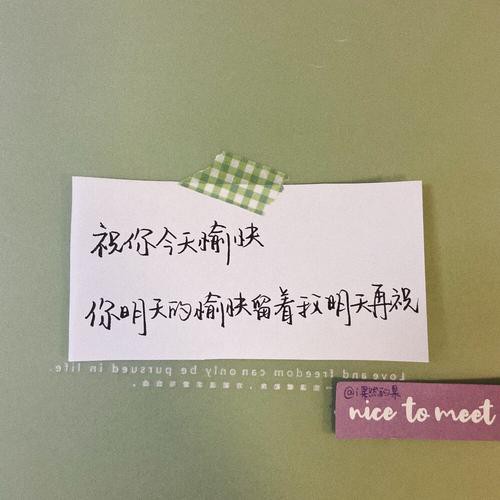 祝你今天愉快
你明天的愉快留着我明天再祝
Love and freedom can only be pursued in life.
nice to meet